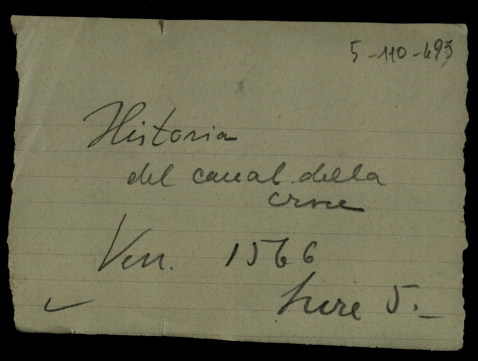 5-110-493
Historia
del canal della
croce
Ven. 1566
Lire 5.-